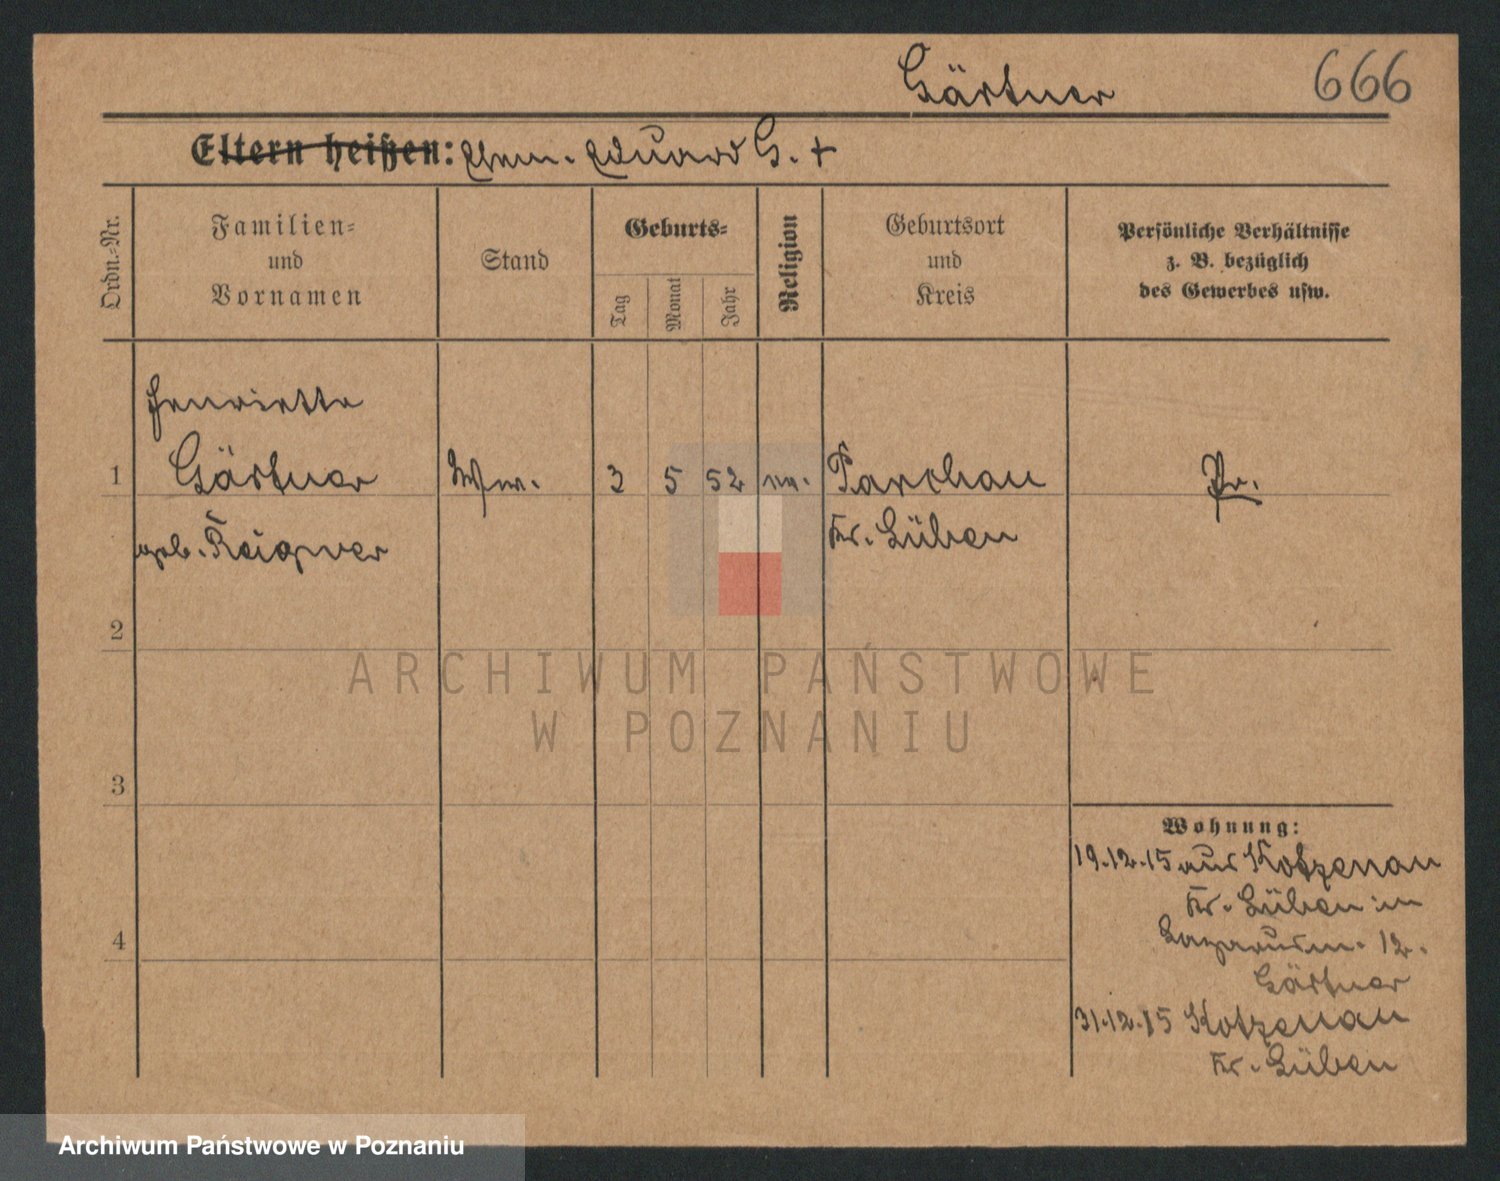 Gärtner 666
Eltern heißen: Ehem. Eduard G. +
Ordn.-Nr.
Familien-
und
Vornamen
Stand
Geburts-
Tag
Monat
Jahr
Religion
Geburtsort
und
Kreis
Persönliche Verhältnisse
z. B. bezüglich
des Gewerbes usw.
Henriette
1 Gärtner Ww. 3 5 52 ev. Parchau Pr.
geb. Kr. Lüben
2
3
4
Wohnung:
19.12.15 aus Kotzenau
Kr. Lüben in
12.
Gärtner
31.12.15 Kotzenau
Kr. Lüben
ARCHIWUM PAŃSTWOWE
W POZNANIU
Archiwum Państwowe w Poznaniu